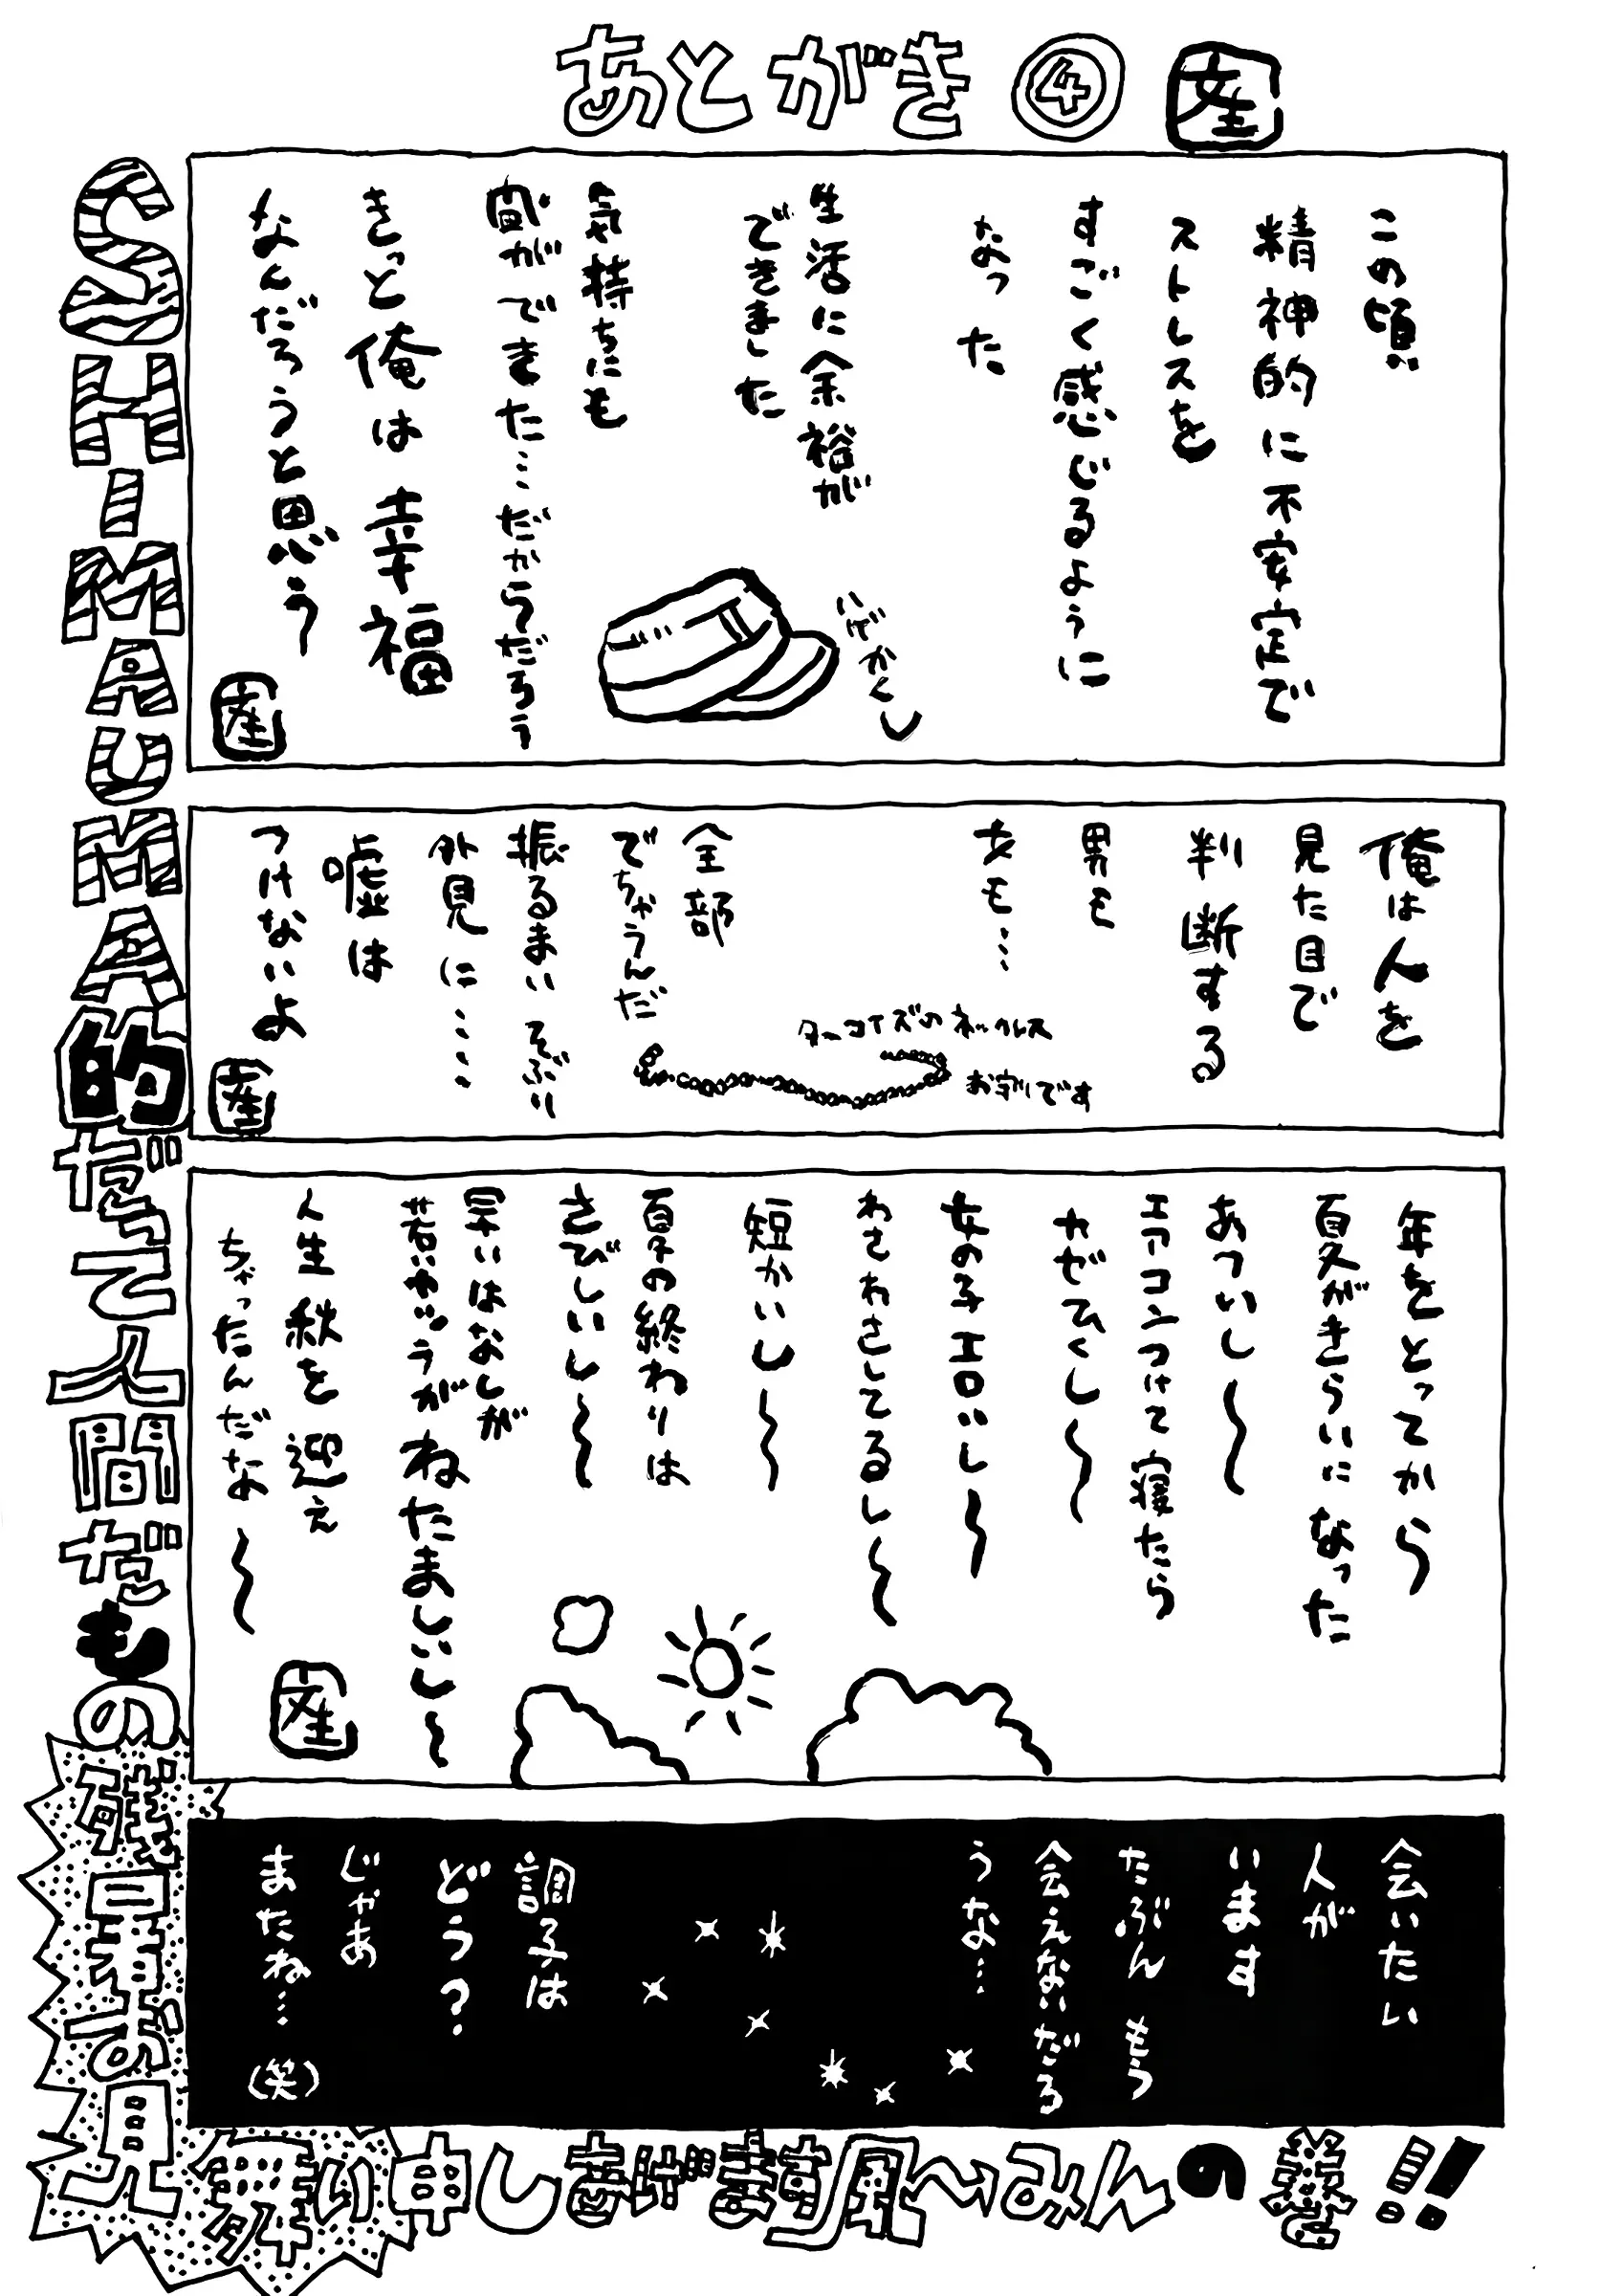 あとがき④
この頃
精神的に不安定で
ストレスを
すごく感じるように
なった
生活に余裕が
できました
気持ちにも
余裕ができた…だからだろう
きっと俺は幸福
なんだろうと思う
ハゲかくし
俺は人を
見た目で
判断する
男も
女も…
全部
でちゃうんだ
振るまい そぶり
外見に……
嘘は
つけないよ
ターコイズのネックレス
お守りです
年をとってから
夏がきらいになった
あついし〜
エアコンつけて寝たら
カゼひくし〜
女の子エロいし〜
わさわさしてるし〜
短かいし〜
夏の終わりは
さびしいし〜
早いはなしが
若いヤツらがねたましいし〜
人生秋を迎え
ちゃったんだな〜
会いたい
人が
います
たぶん もう
会えないだろ
うな…
調子は
どう？
じゃあ
またね…（笑）
SHIMAUMA的だって人間だもの
残暑お見舞い申しあげます